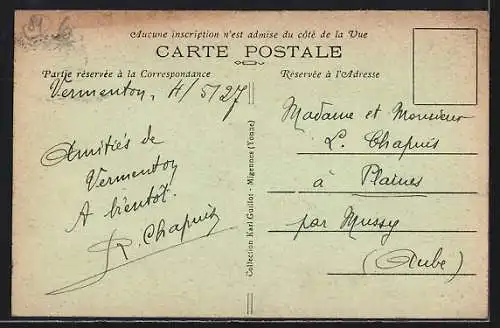 Aucune inscription n'est admise du côté de la Vue
CARTE POSTALE
Partie réservée à la Correspondance
Réservée à l'Adresse
Vermenton, 4/5/27
Amitiés de
Vermenton
A bientôt.
R. Chapuis
Collection Karl Guillot - Migennes (Yonne)
Madame et Monsieur
L. Chapuis
à Plaines
par Mussy
(Aube)